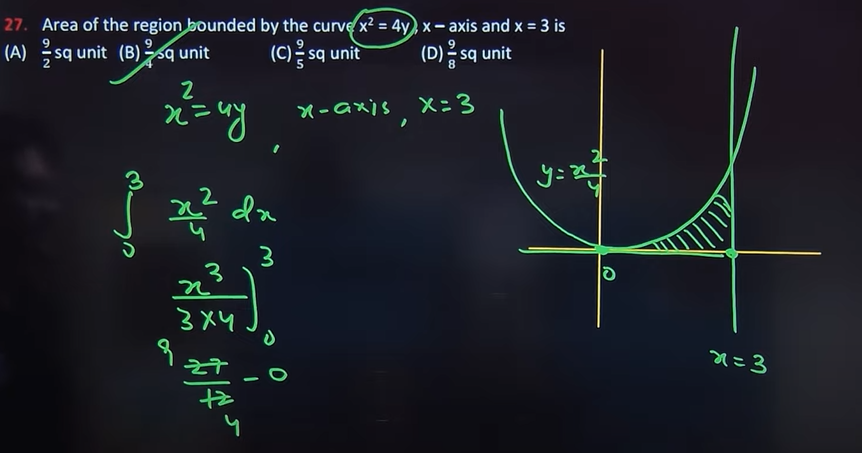 27. Area of the region bounded by the curve x² = 4y, x – axis and x = 3 is
(A) 9/2 sq unit (B) 9/4 sq unit (C) 9/5 sq unit (D) 9/8 sq unit
x² = 4y, x-axis, x = 3
y = x²/4
∫₀³ x²/4 dx
x³/(3×4) ]₀³
0
9
27/12 - 0
4
x = 3